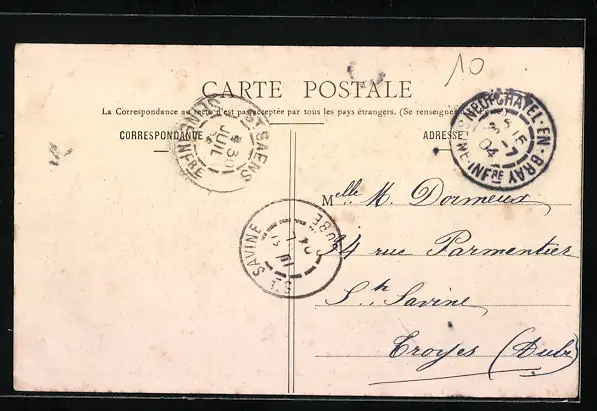 10
CARTE POSTALE
La Correspondance au recto n'est pas acceptée par tous les pays étrangers. (Se renseigner
CORRESPONDANCE
ADRESSE
ST SAENS
30
JUIL
SEINE INFRE
NEUFCHATEL-EN-BRAY
04
SEINE-INFRE
Melle M. Dormeux
34 rue Parmentier
Ste Savine
Troyes (Aube
STE SAVINE
AUBE